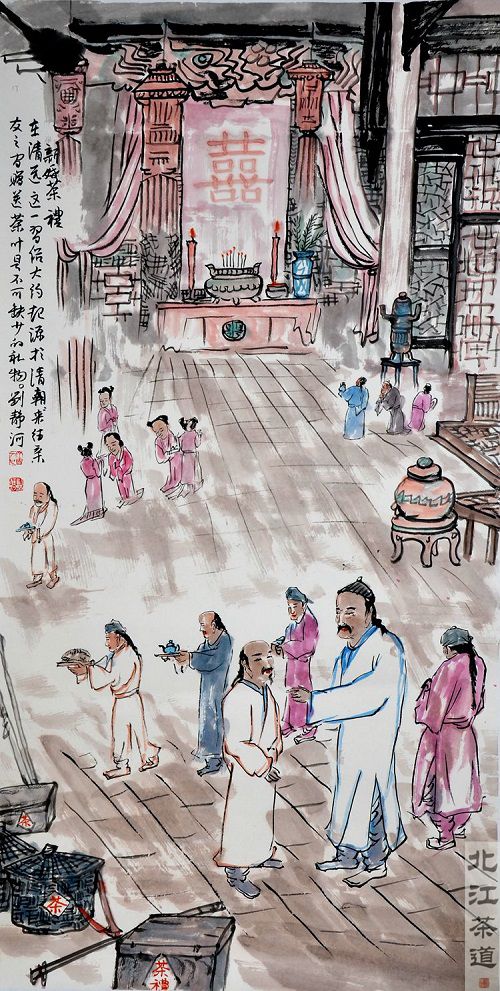 囍
新婚茶禮
在清远这一習俗大约起源於清朝来往亲
友之间婚送茶叶是不可缺少的礼物。刘静河
茶
茶
茶禮
北江茶道